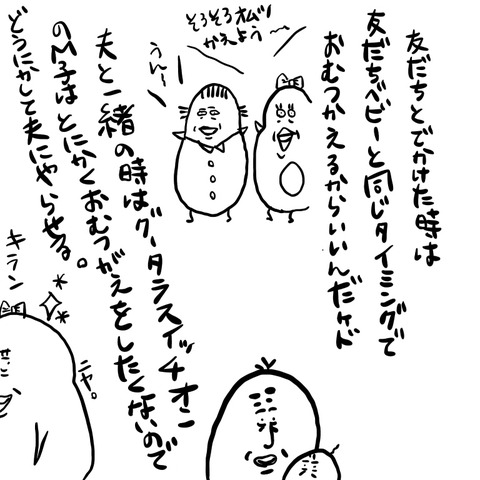 友だちとでかけた時は
友だちベビーと同じタイミングで
おむつかえるからいいんだケド
そろそろオムツ
かえよう〜
うん〜
夫と一緒の時はグータラスイッチオン
のM子はとにかくおむつがえをしたくないので
どうにかして夫にやらせる。
キラン
ニヤ。